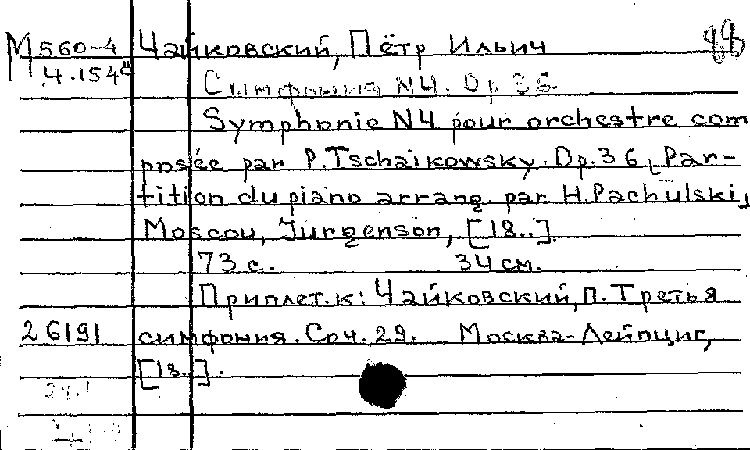 М560-4 Чайковский, Пётр Ильич
Ч.154
Симфония N4. Op. 36.
Symphonie N4 pour orchestre com
posée par P. Tschaikowsky. Op. 36. Par-
tition du piano arrang. par H. Pachulski,
Moscou, Jurgenson, [18..].
73 с. 34 см.
Приплет. к: Чайковский, П. Третья
26191 симфония. Соч. 29. Москва-Лейпциг,
[18..].